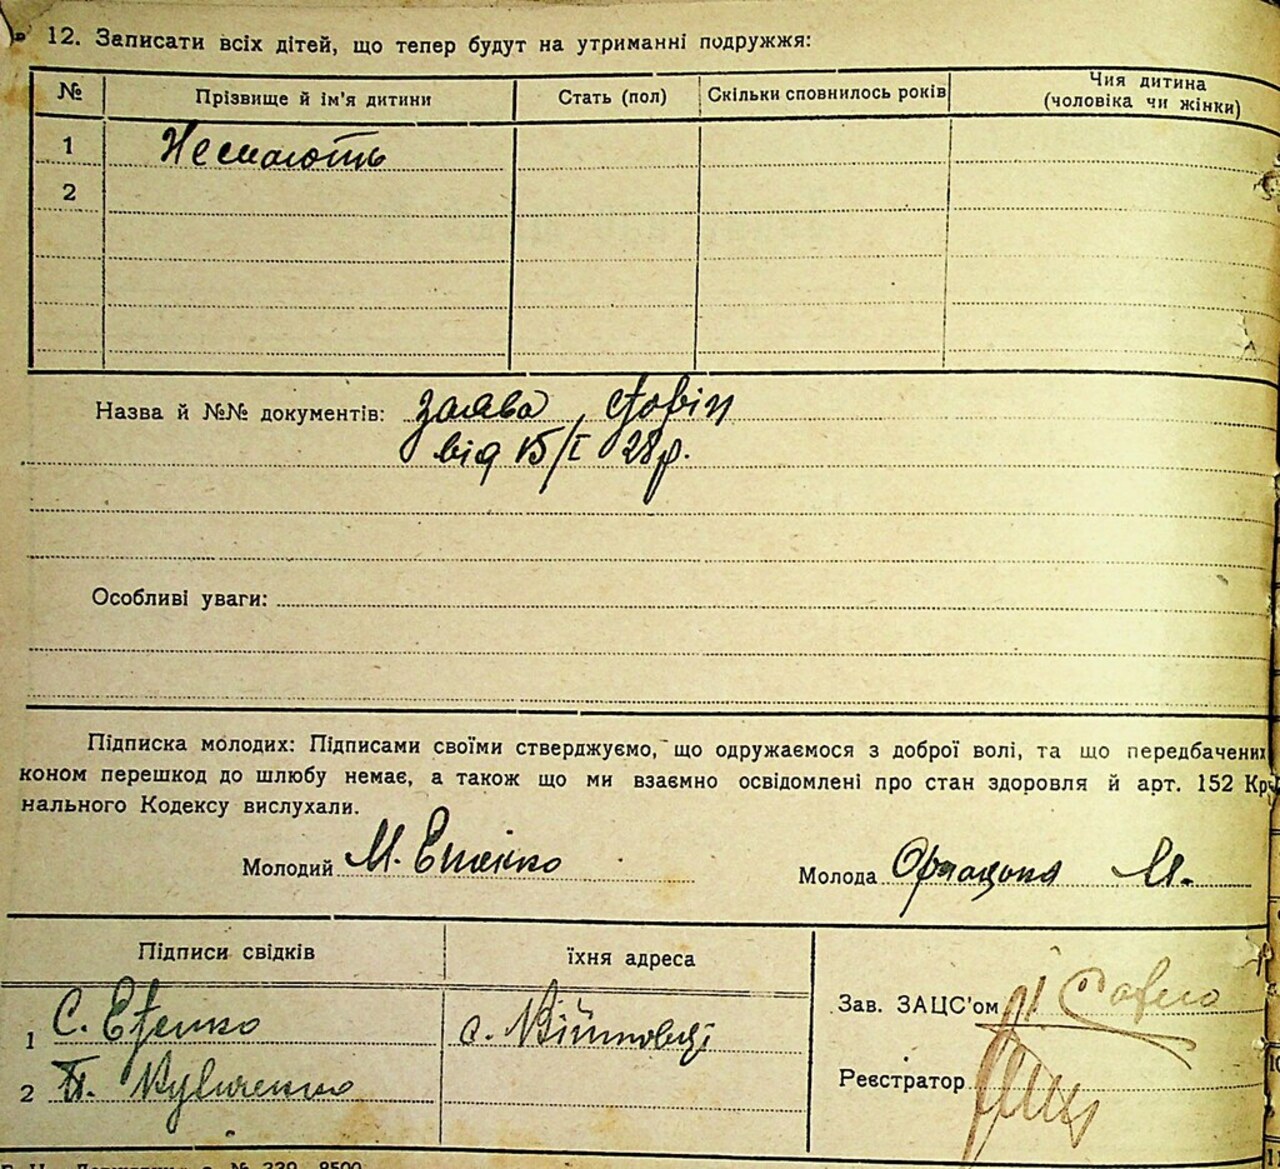 12. Записати всіх дітей, що тепер будут на утриманні подружжя:
№ Прізвище й ім'я дитини Стать (пол) Скільки сповнилось років Чия дитина
(чоловіка чи жінки)
1 Не мають
2
Назва й №№ документів: заява, довід
від 15/I 28р.
Особливі уваги:
Підписка молодих: Підписами своїми стверджуємо, що одружаємося з доброї волі, та що передбачених
коном перешкод до шлюбу немає, а також що ми взаємно освідомлені про стан здоровля й арт. 152 Кр
нального Кодексу вислухали.
Молодий М.
Молода М.
Підписи свідків їхня адреса
Зав. ЗАЦС'ом
1 С. с. Війтовці
Реєстратор
2 П.
№ 239—8500